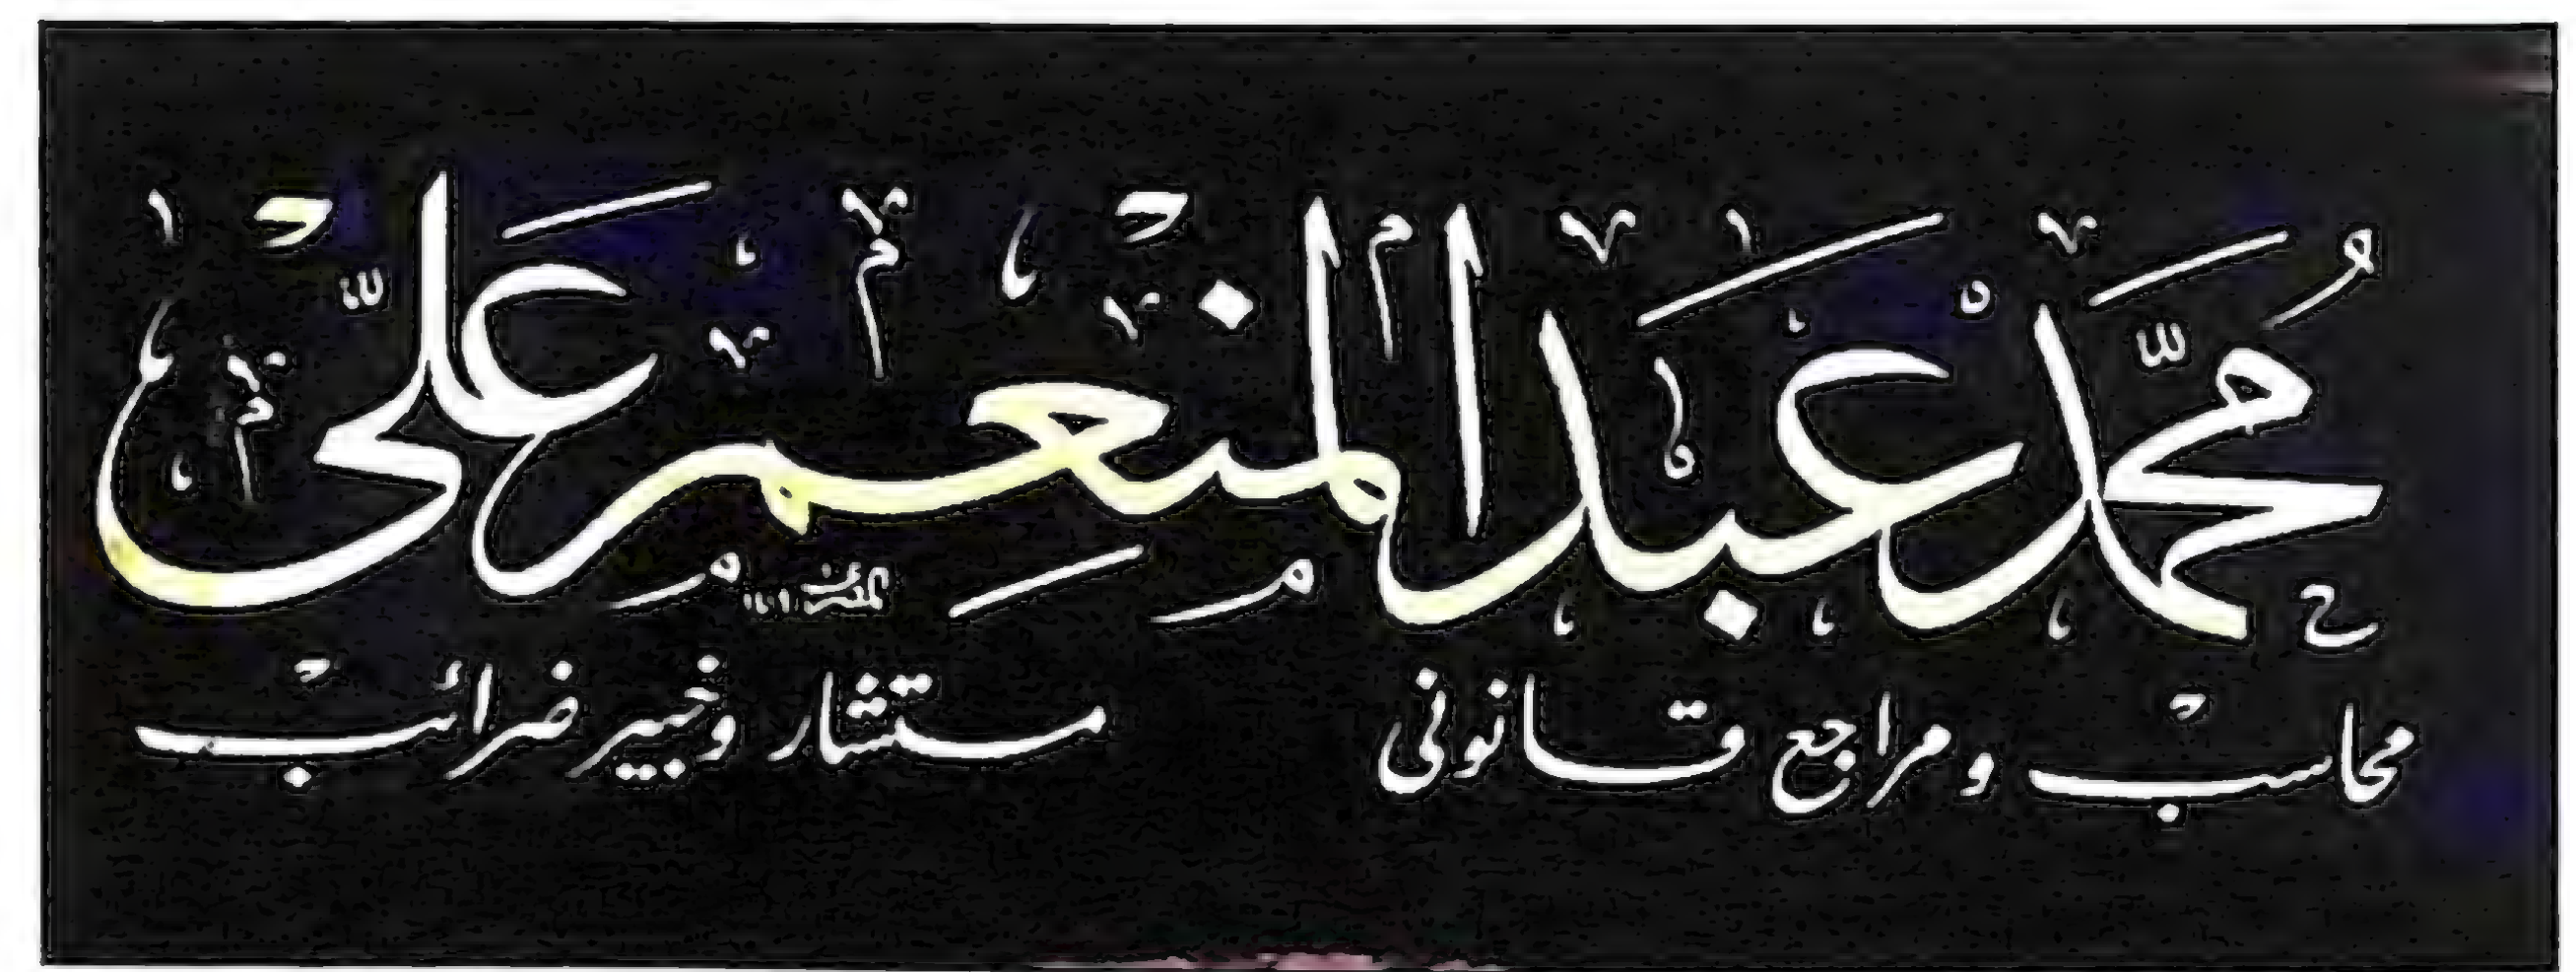 محمد عبد المنعم على
محاسب ومراجع قانونى مستشار وخبير ضرائب